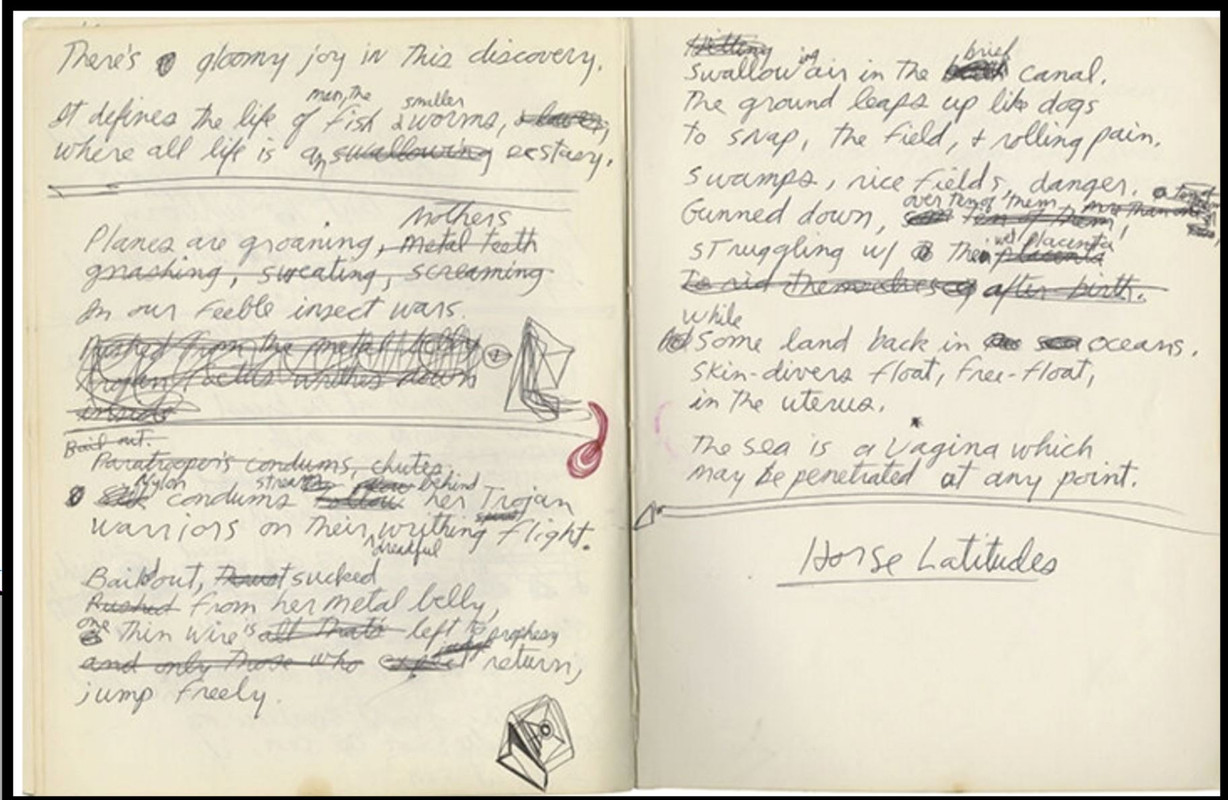 There's gloomy joy in this discovery.
man, the smiller
It defines the life of fish & worms, & loves,
where all life is an swallowing ecstasy.
Mothers
Planes are groaning, metal teeth
gnashing, sweating, screaming
In our feeble insect wars.
Rushed from the metal belly
Trojan foetus writhes down
inside
Bail out.
Paratrooper's condums, chutes,
Nylon stream behind
condums follow her Trojan
warriors on their writhing flight.
dreadful
Bail'd out, Thrust sucked
Rushed from her metal belly,
one Thin wire is all That's left to prophesy
and only Those who expect return,
jump freely.
Hitting
ing brief
swallow air in The canal.
The ground leaps up like dogs
To snap, the field, + rolling pain.
Swamps, rice fields, danger.
over ten of them more than
Gunned down, ten of them,
wet placenta
struggling w/ Their placenta
To rid themselves of after-birth.
while
Some land back in oceans.
Skin-divers float, free-float,
in the uterus.
The sea is a Vagina which
may be penetrated at any point.
Horse Latitudes